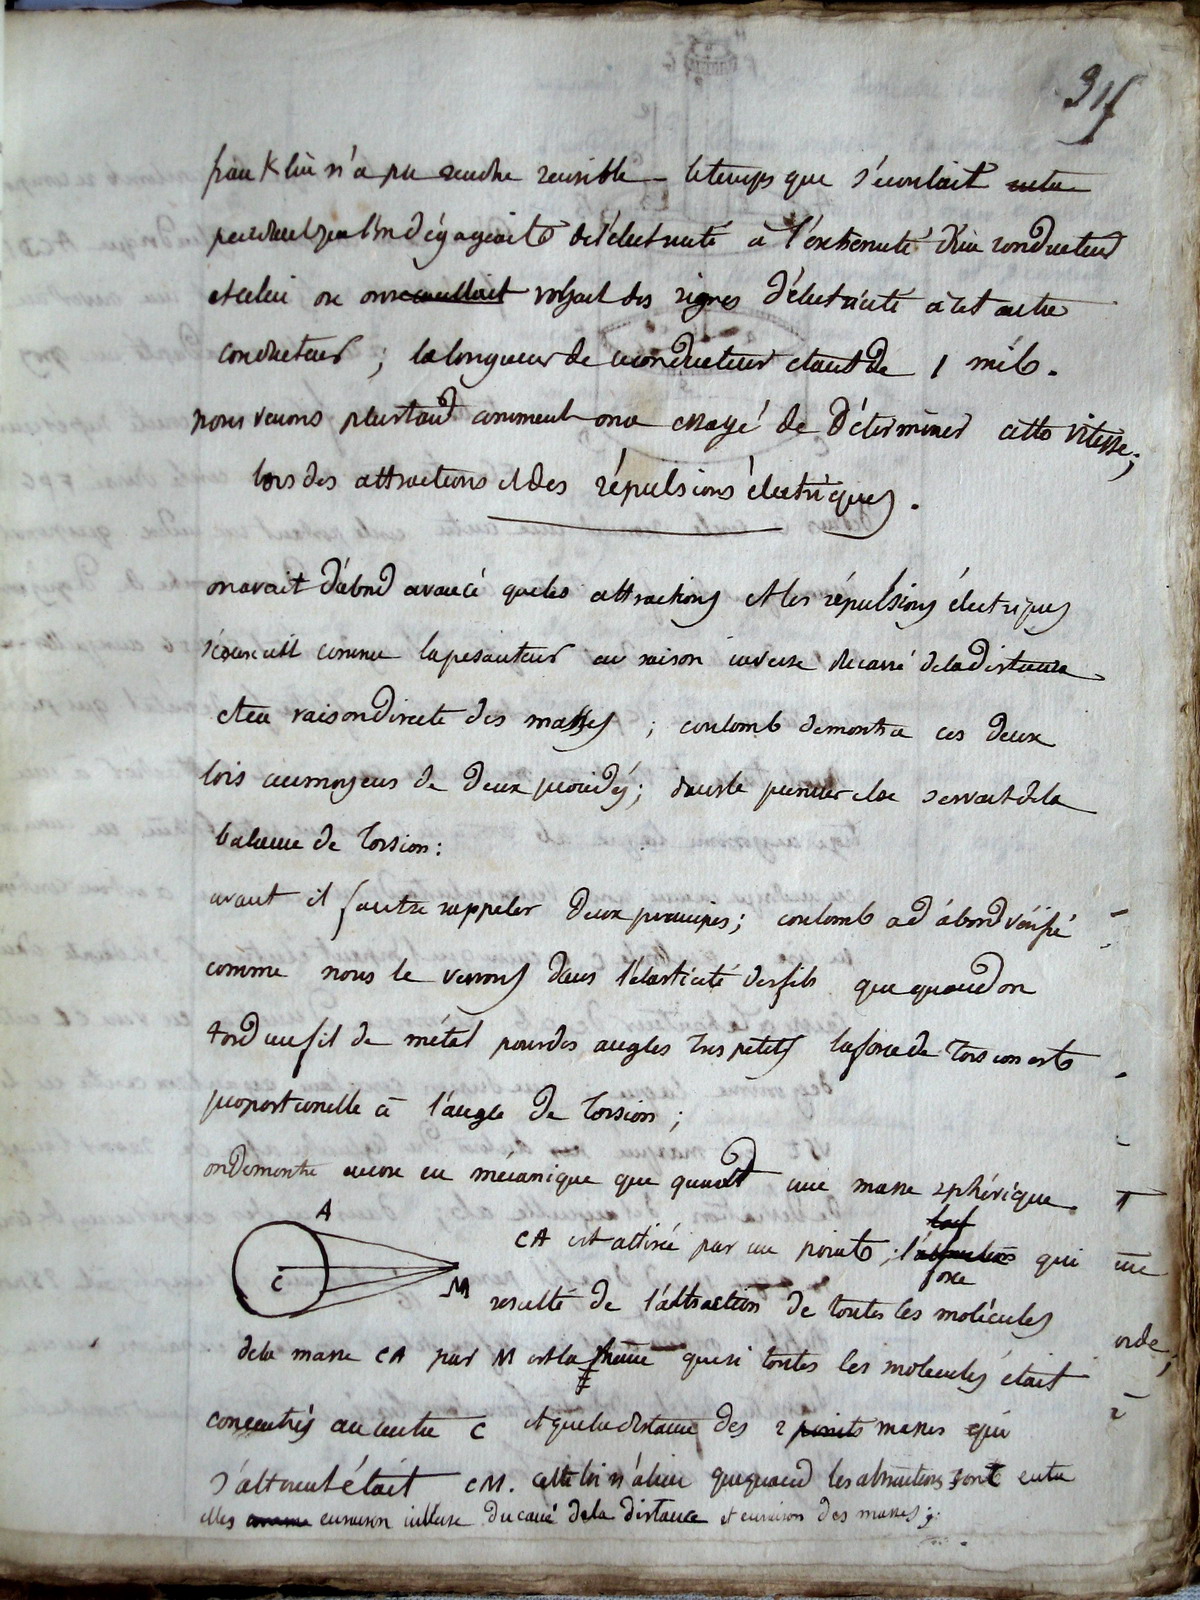 315
franklin n'a pu rendre sensible le temps que s'écoulait entre
pendant que l'on dégageait de l'électricité à l'extrémité d'un conducteur
et celui ou on recueillait voyait des signes d'électricité à cet autre
conducteur ; la longueur de ce conducteur etant de 1 mil.
nous verons plus tard comment on a essayé de déterminer cette vitesse ;
lois des attractions et des répulsions électriques.
on avait d'abord avancé que les attractions et les répulsions électriques
s'exerceait comme la pesanteur en raison inverse du carré de la distance
et en raison directe des masses ; coulomb demontra ces deux
lois au moyens de deux procédés ; dans le premier il se servait de la
balance de torsion :
avant il faut se rappeler deux principes ; coulomb a d'abord vérifié
comme nous le verrons dans l'élasticité des fils que quand on
tord un fil de métal pour des angles tres petits la force de torsion est
proportionelle à l'angle de torsion ;
on demontre encore en mécanique que quand une masse sphérique
CA est attirée par un point, l'attraction force qui
resulte de l'attraction de toutes les molécules
de la masse CA par M est la même que si toutes les molecules était
concentrés au centre C et que la distance des 2 points masses qui
s'attirent était CM. cette loi n'a lieu que quand les attractions sont entre
elles comme en raison inverse du carré de la distance et en raison des masses ;
A
C
M